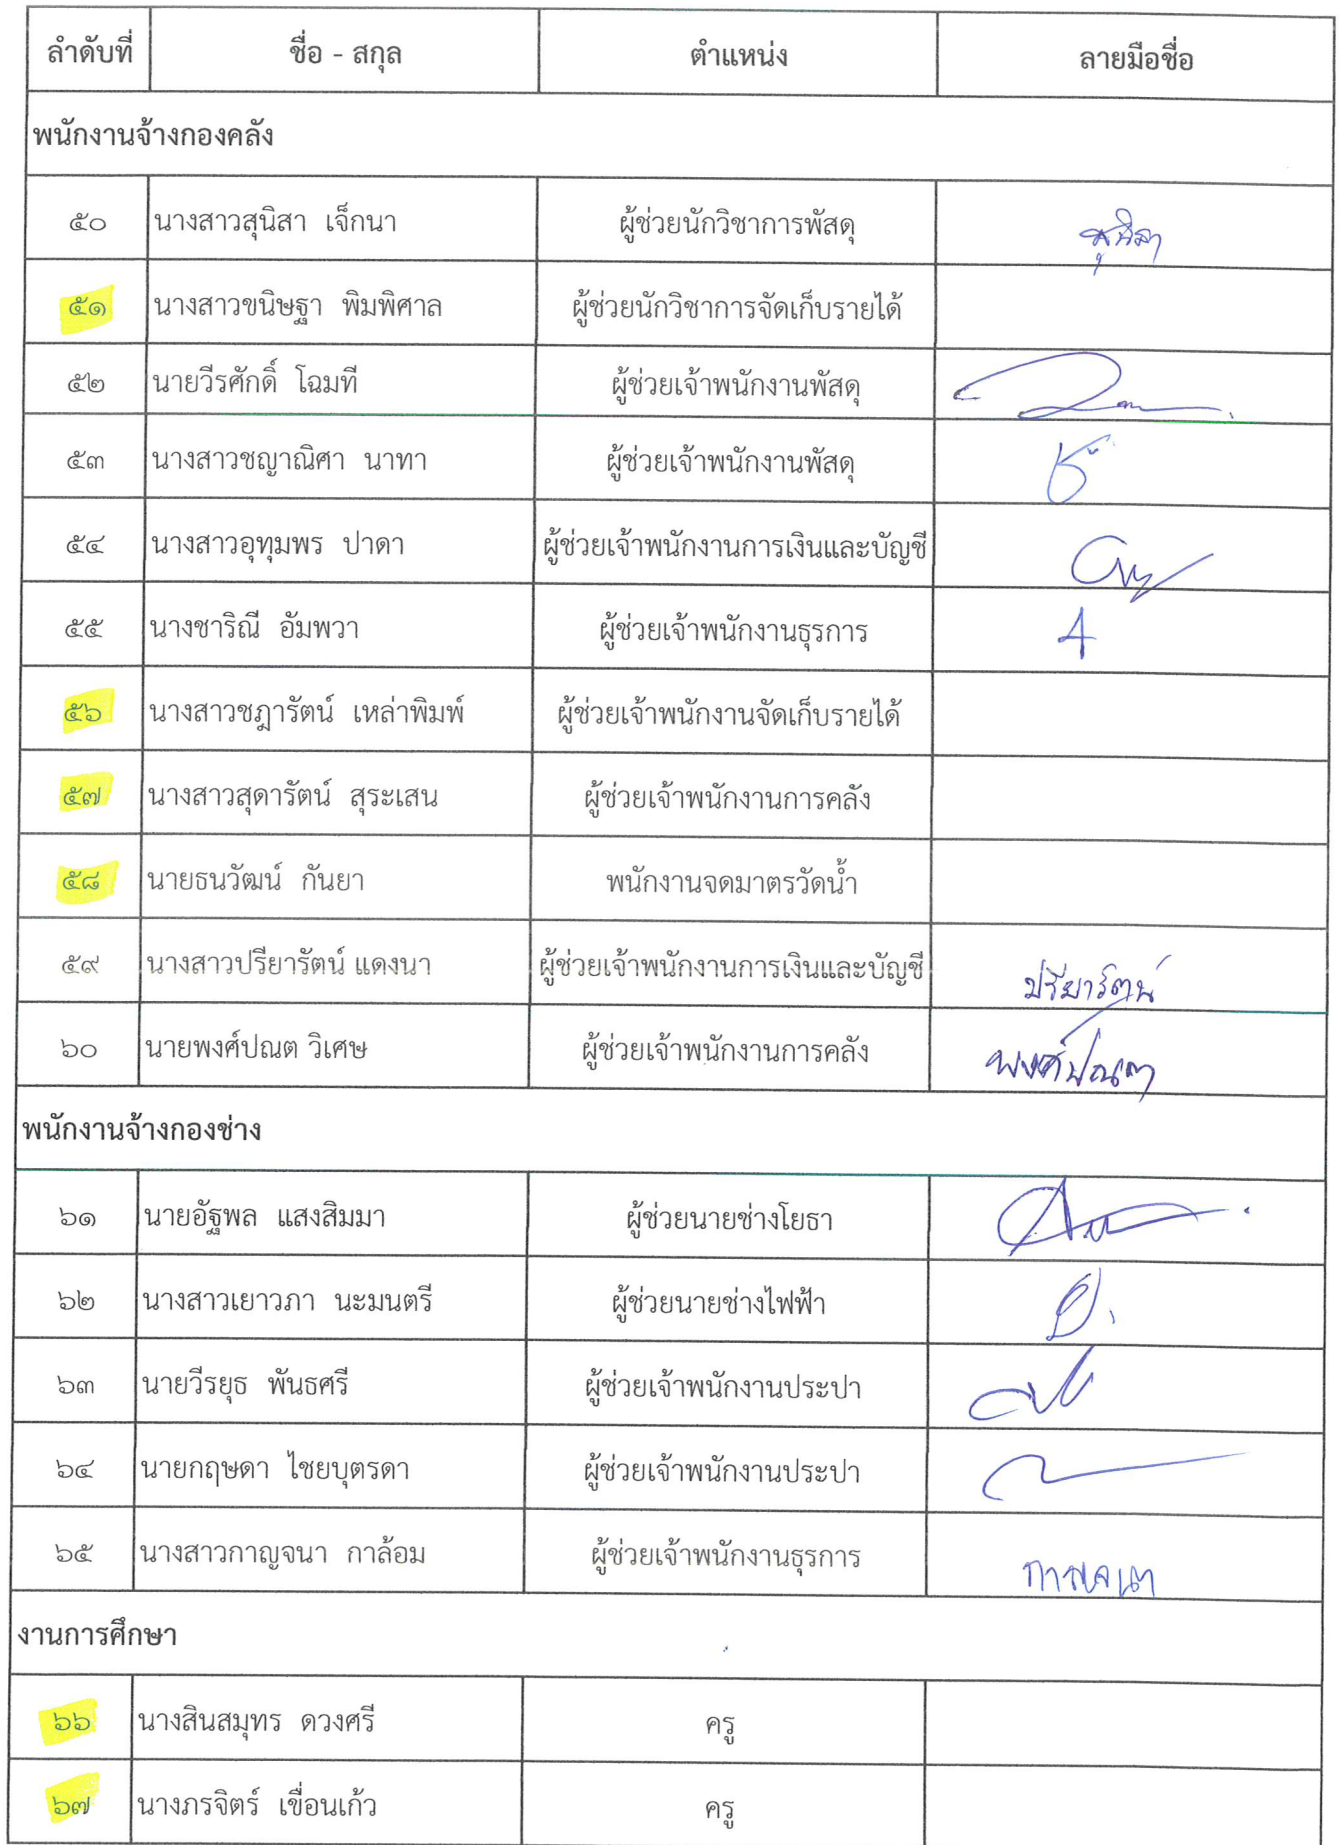 ลำดับที่ ชื่อ - สกุล ตำแหน่ง ลายมือชื่อ
พนักงานจ้างกองคลัง
๕๐ นางสาวสุนิสา เจ็กนา ผู้ช่วยนักวิชาการพัสดุ สุนิสา
๕๑ นางสาวขนิษฐา พิมพิศาล ผู้ช่วยนักวิชาการจัดเก็บรายได้
๕๒ นายวีรศักดิ์ โฉมที ผู้ช่วยเจ้าพนักงานพัสดุ
๕๓ นางสาวชญาณิศา นาทา ผู้ช่วยเจ้าพนักงานพัสดุ
๕๔ นางสาวอุทุมพร ปาดา ผู้ช่วยเจ้าพนักงานการเงินและบัญชี
๕๕ นางชาริณี อัมพวา ผู้ช่วยเจ้าพนักงานธุรการ
๕๖ นางสาวชฎารัตน์ เหล่าพิมพ์ ผู้ช่วยเจ้าพนักงานจัดเก็บรายได้
๕๗ นางสาวสุดารัตน์ สุระเสน ผู้ช่วยเจ้าพนักงานการคลัง
๕๘ นายธนวัฒน์ กันยา พนักงานจดมาตรวัดน้ำ
๕๙ นางสาวปรียารัตน์ แดงนา ผู้ช่วยเจ้าพนักงานการเงินและบัญชี ปรียารัตน์
๖๐ นายพงศ์ปณต วิเศษ ผู้ช่วยเจ้าพนักงานการคลัง พงศ์ปณต
พนักงานจ้างกองช่าง
๖๑ นายอัฐพล แสงสิมมา ผู้ช่วยนายช่างโยธา
๖๒ นางสาวเยาวภา นะมนตรี ผู้ช่วยนายช่างไฟฟ้า
๖๓ นายวีรยุธ พันธศรี ผู้ช่วยเจ้าพนักงานประปา
๖๔ นายกฤษดา ไชยบุตรดา ผู้ช่วยเจ้าพนักงานประปา
๖๕ นางสาวกาญจนา กาล้อม ผู้ช่วยเจ้าพนักงานธุรการ กาญจนา
งานการศึกษา
๖๖ นางสินสมุทร ดวงศรี ครู
๖๗ นางภรจิตร์ เขื่อนแก้ว ครู